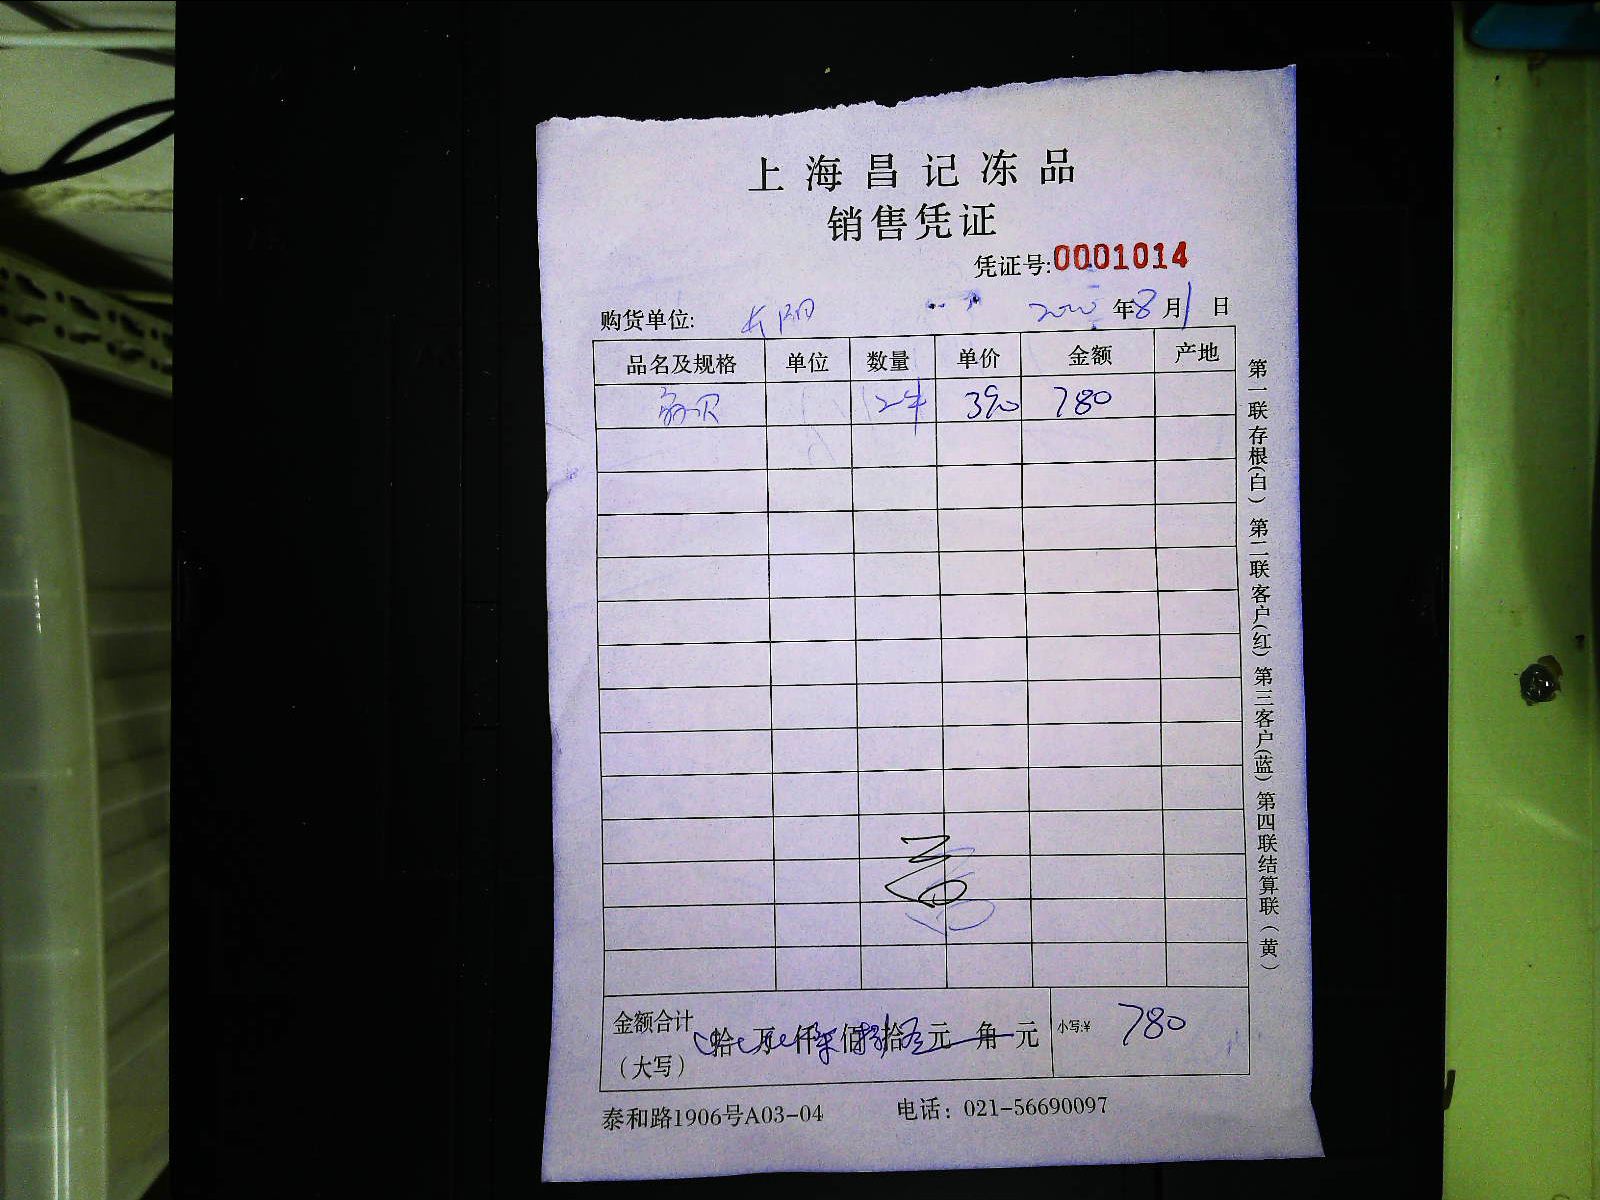 上海昌记冻品
销售凭证
凭证号:0001014
购货单位: 长阳 年8月1日
品名及规格 单位 数量 单价 金额 产地
390 780
金额合计 拾 万 仟 佰 拾 元 角 元 小写:¥ 780
(大写)
泰和路1906号A03-04 电话: 021-56690097
第一联存根(白) 第二联客户(红) 第三客户(蓝) 第四联结算联(黄)